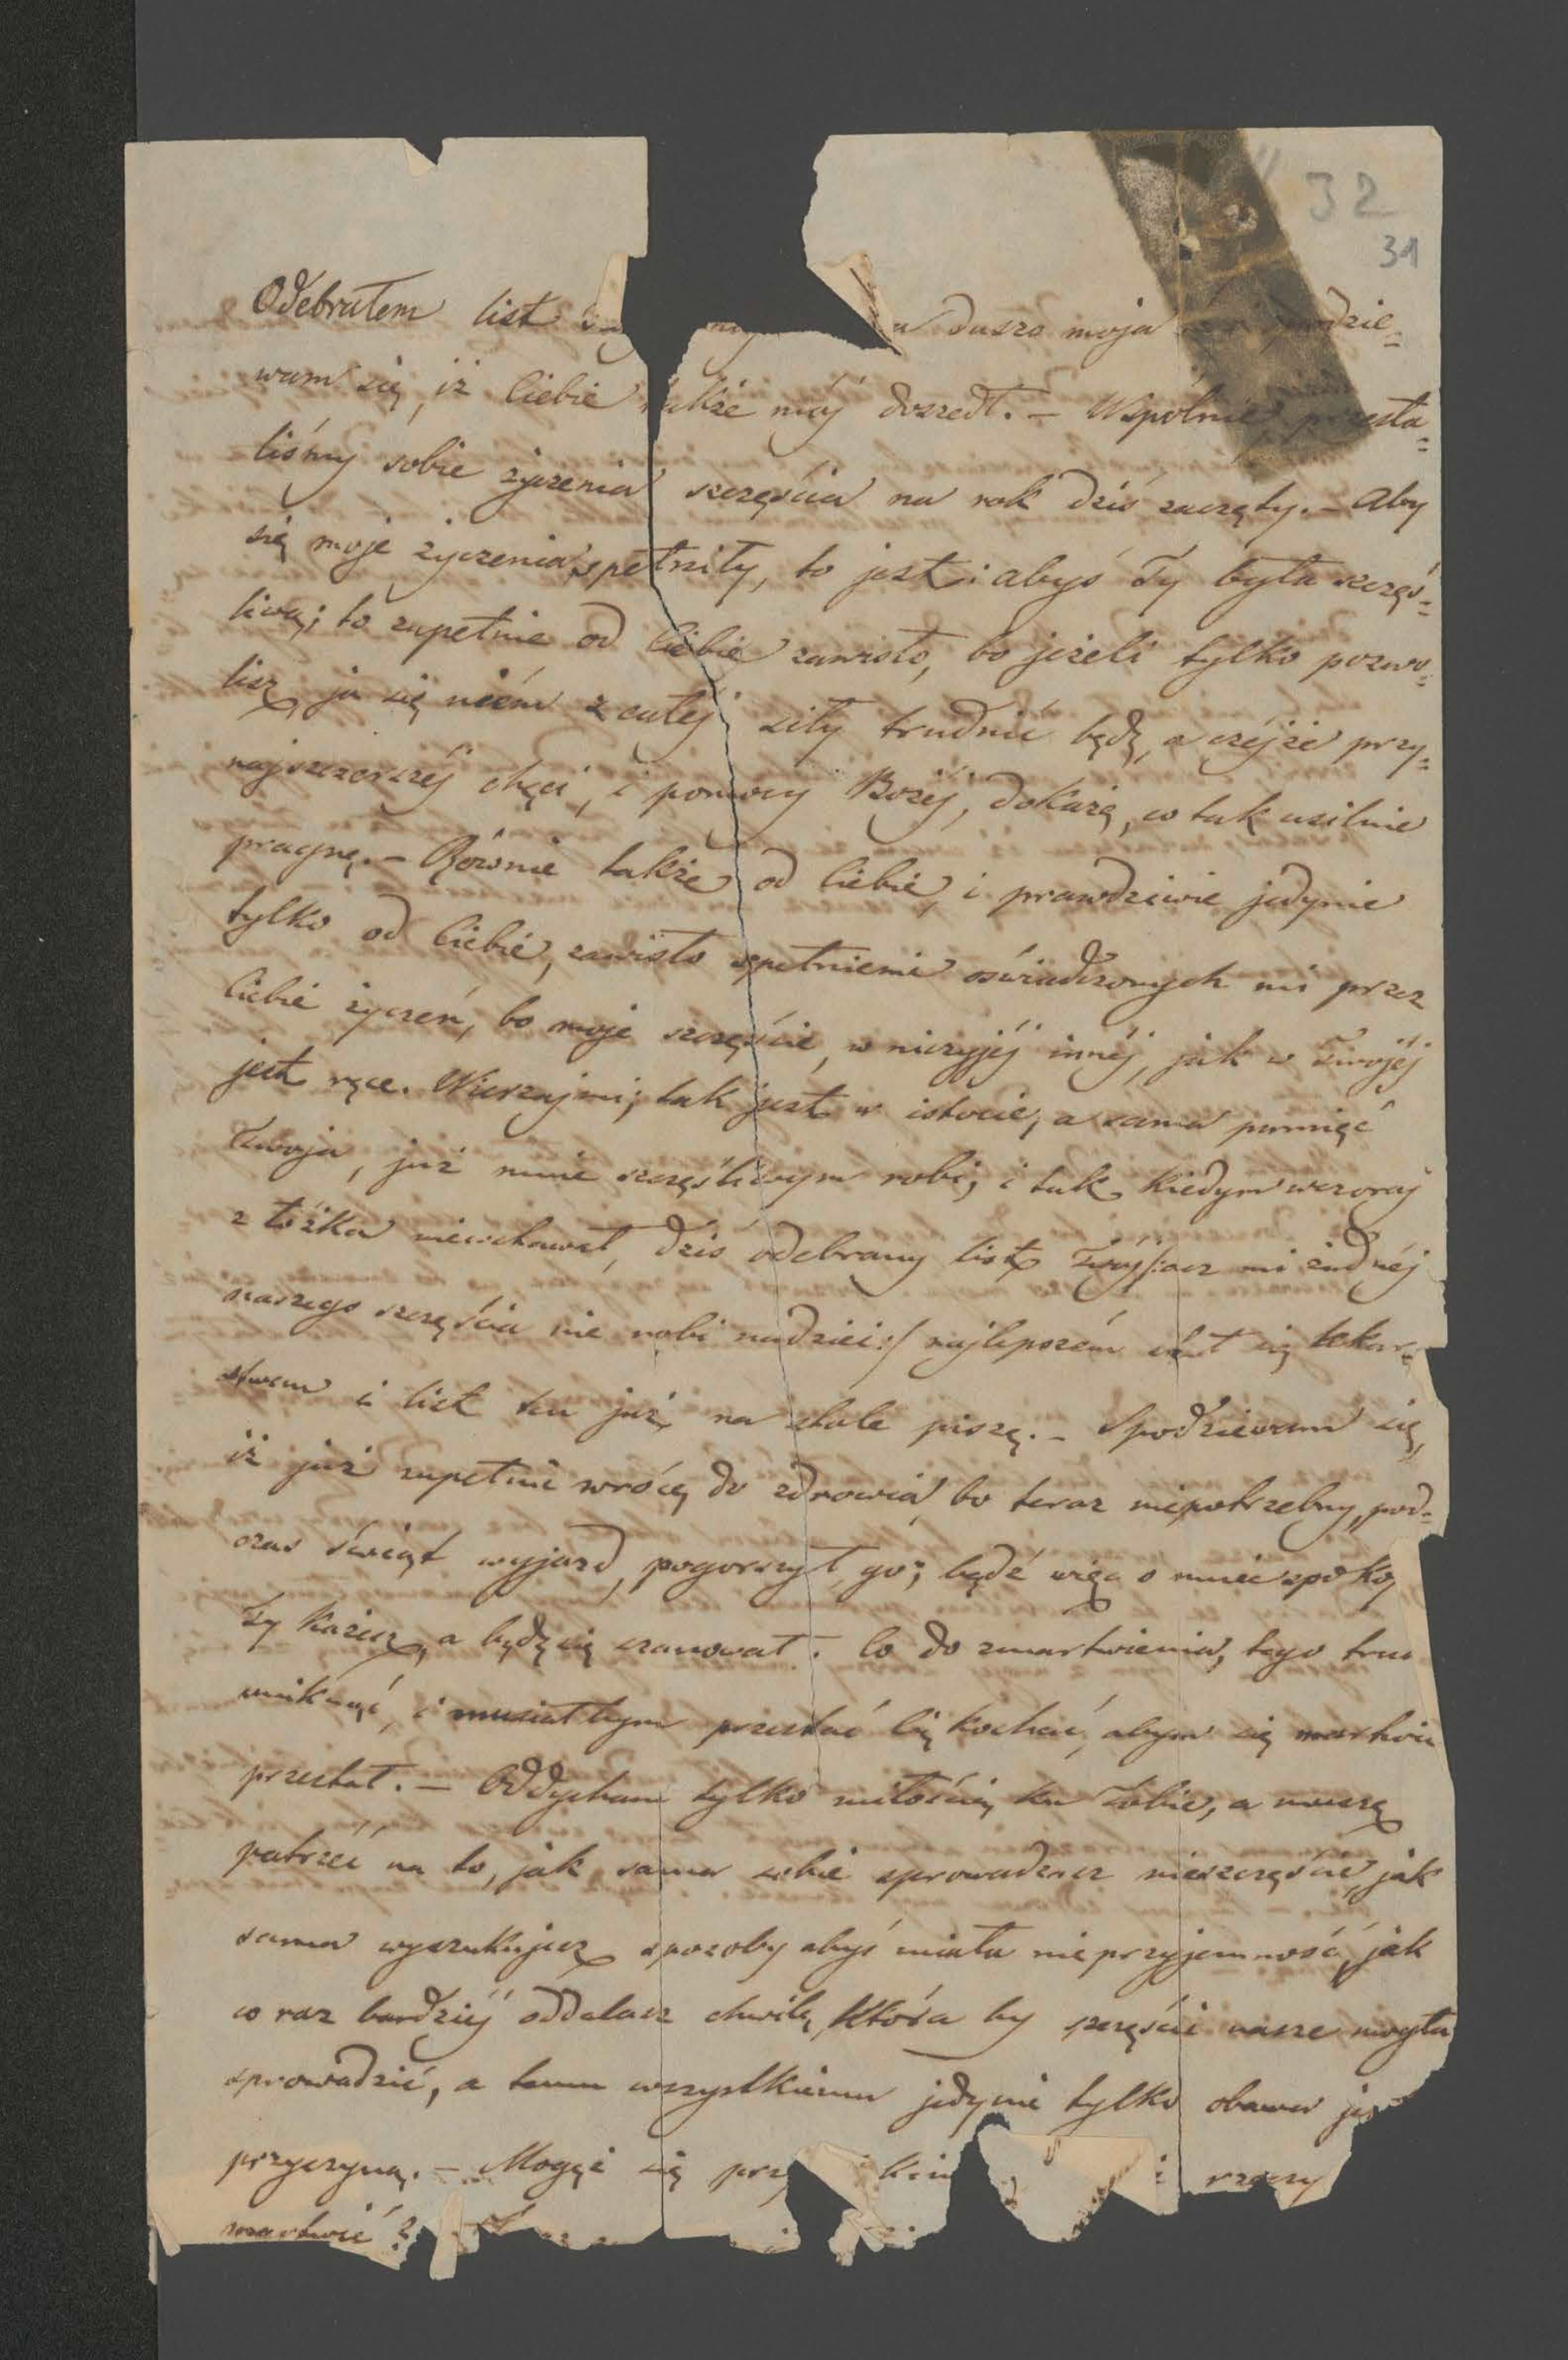 32
31
Odebrałem list dusza moja dzie=
wam się, iż Ciebie także mój doszedł. – Wspólnie przesła=
liśmy sobie życzenia szczęścia na rok dziś zaczęty. – Aby
się moje życzenia spełniły, to jest: abyś Ty była szczęś=
liwą; to zupełnie od Ciebie zawisło, bo jeżeli tylko pozwo=
lisz, ja się niém z całéj siły trudnić będę, a czéjże przy=
najszczerszéj chęci, i pomocy Bożéj, dokażę, co tak usilnie
pragnę. – Równie także od Ciebie, i prawdziwie jedynie
tylko od Ciebie, zawisło spełnienie oświadczonych mi przez
Ciebie życzeń, bo moje szczęście, w niczyjéj innéj, jak w Twojéj
jest ręce. Wierzaj mi; tak jest w istocie, a sama pamięć
Twoja, już mnie szczęśliwym robi; i tak kiedym wczoraj
z łóżka niewstawał, dziś odebrany list Twój /:acz mi żadnéj
naszego szczęścia nie robi nadziei:/ najlepszém stał się lekar=
stwem i list ten już na stole piszę. – Spodziewam się,
iż już zupełnie wrócę do zdrowia, bo teraz niepotrzebny, pod=
czas świąt wyjazd, pogorszył go; bądź więc o mnie spokoj
Ty każesz, a będę się szanował. Co do zmartwienia, tego tru
uniknąć, i musiałbym przestać Cię kochać, abym się martwić
przestał. – Oddycham tylko miłością ku Tobie, a muszę
patrzéć na to, jak sama sobie sprowadzasz nieszczęście, jak
sama wyszukujesz sposoby abyś miała nieprzyjemność, jak
co raz bardziéj oddalasz chwilę, która by szczęście nasze mogła
sprowadzić, a temu wszystkiemu jedynie tylko obawa jes
przyczyną. – Mogęż się prz rzeczy
martwić?